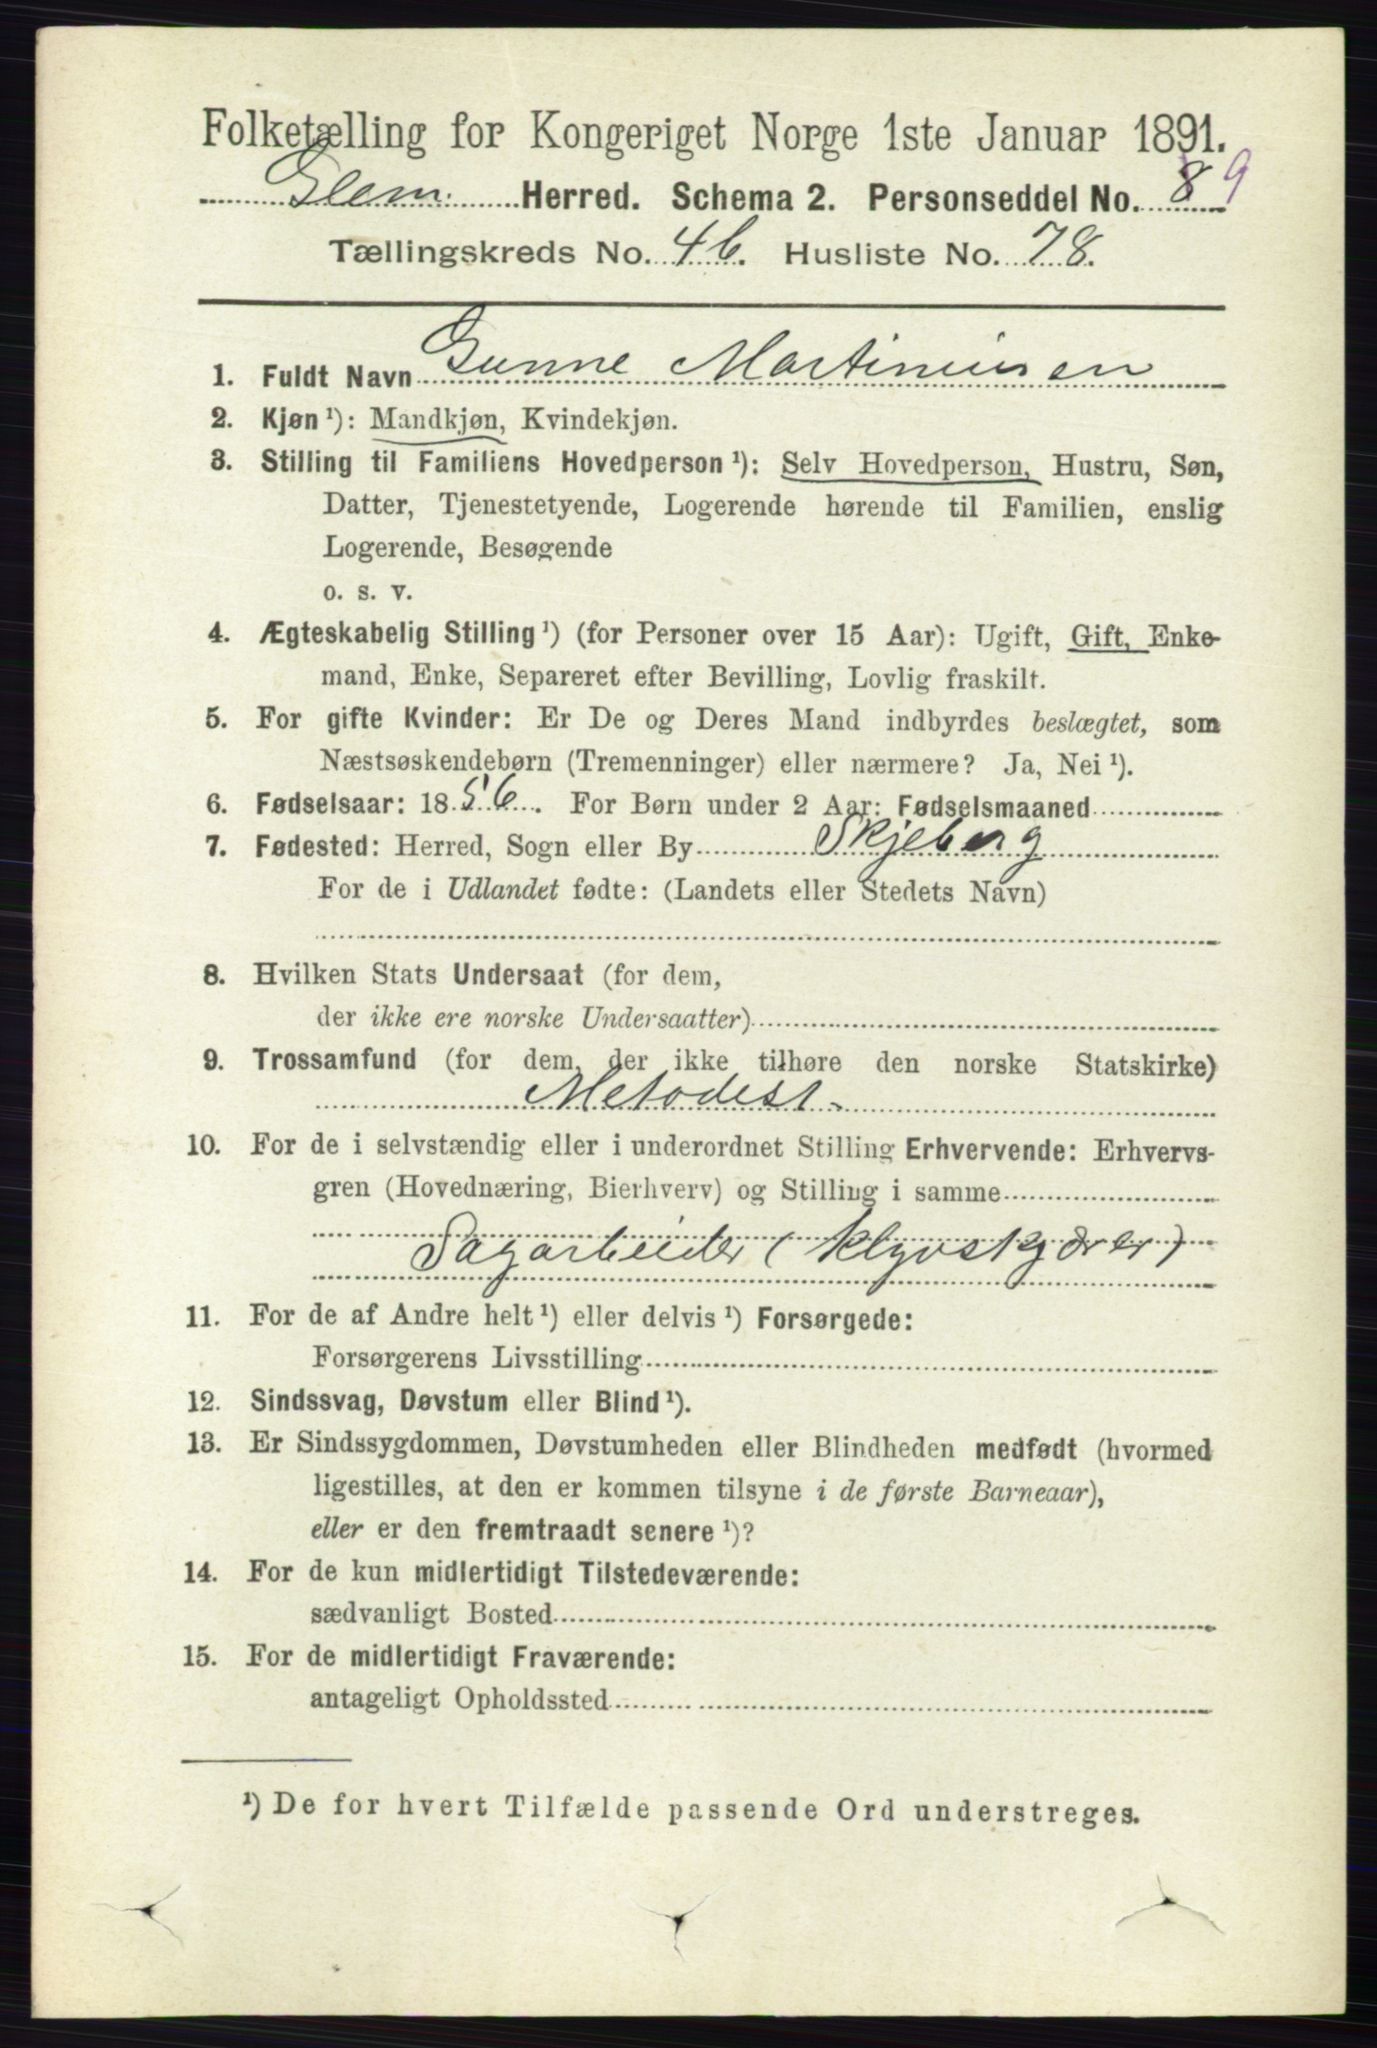 Folketælling for Kongeriget Norge 1ste Januar 1891.
Glem. Herred. Schema 2. Personseddel No. 8 9
Tællingskreds No. 4 b. Husliste No. 78.
1. Fuldt Navn Gunne Martiniusen
2. Kjøn ¹): Mandkjøn, Kvindekjøn.
3. Stilling til Familiens Hovedperson ¹): Selv Hovedperson, Hustru, Søn,
Datter, Tjenestetyende, Logerende hørende til Familien, enslig
Logerende, Besøgende
o. s. v.
4. Ægteskabelig Stilling ¹) (for Personer over 15 Aar): Ugift, Gift, Enke-
mand, Enke, Separeret efter Bevilling, Lovlig fraskilt.
5. For gifte Kvinder: Er De og Deres Mand indbyrdes beslægtet, som
Næstsøskendebørn (Tremenninger) eller nærmere? Ja, Nei ¹).
6. Fødselsaar: 1856. For Børn under 2 Aar: Fødselsmaaned
7. Fødested: Herred, Sogn eller By Skjeberg
For de i Udlandet fødte: (Landets eller Stedets Navn)
8. Hvilken Stats Undersaat (for dem,
der ikke ere norske Undersaatter)
9. Trossamfund (for dem, der ikke tilhøre den norske Statskirke)
Metodist.
10. For de i selvstændig eller i underordnet Stilling Erhvervende: Erhvervs-
gren (Hovednæring, Bierhverv) og Stilling i samme
Sagarbeider (klyvskjærer)
11. For de af Andre helt ¹) eller delvis ¹) Forsørgede:
Forsørgerens Livsstilling
12. Sindssvag, Døvstum eller Blind ¹).
13. Er Sindssygdommen, Døvstumheden eller Blindheden medfødt (hvormed
ligestilles, at den er kommen tilsyne i de første Barneaar),
eller er den fremtraadt senere ¹)?
14. For de kun midlertidigt Tilstedeværende:
sædvanligt Bosted
15. For de midlertidigt Fraværende:
antageligt Opholdssted
¹) De for hvert Tilfælde passende Ord understreges.